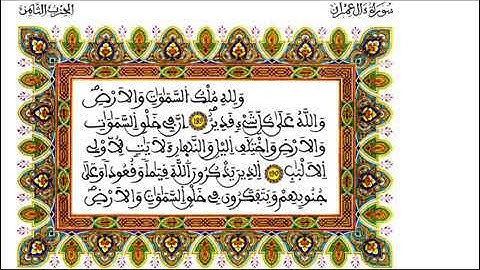 سورة ءال عمران
الحزب الثامن
وَلِلهِ مُلْكُ السَّمَٰوَٰتِ وَالَارْضِ
وَاللَّهُ عَلَىٰ كُلِّ شَےْءٍ قَدِيرٌ 189 إِنَّ فِے خَلْقِ السَّمَٰوَٰتِ
وَالَارْضِ وَاخْتِلَٰفِ اليْلِ وَالنَّهِارِ ءَلَايَٰتٍ لِّأُوْلِے
الَالْبَٰبِ 190 الذِينَ يَذْكُرُونَ اللَّهَ قِيَٰماً وَقُعُوداً وَعَلَىٰ
جُنُوبِهِمْ وَيَتَفَكَّرُونَ فِے خَلْقِ السَّمَٰوَٰتِ وَالَارْضِ